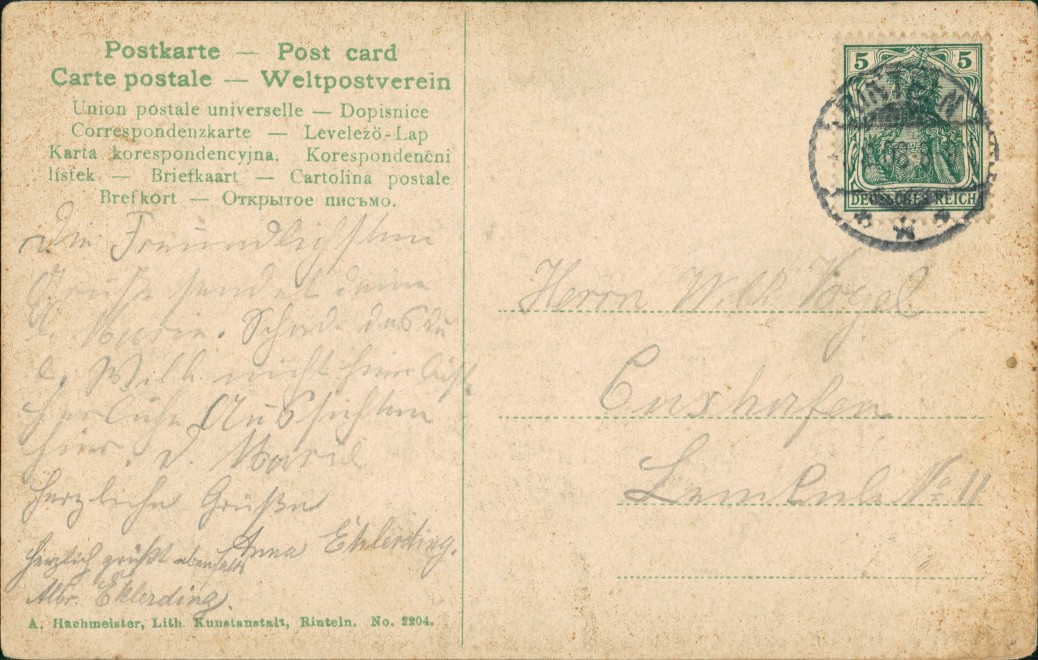 Postkarte — Post card
Carte postale — Weltpostverein
Union postale universelle — Dopisnice
Correspondenzkarte — Levelező-Lap
Karta korespondencyjna. Korespondenční
lístek — Briefkaart — Cartolina postale
Brefkort — Открытое письмо.
Die Freundlichsten
Grüße sendet deine
l. Marie. Schade das du
l. Wilh. nicht hier bist
herliche Aussichten
hier. d. Marie
Herzliche Grüße
Anna Ehlerding.
Herzlich grüßt ebenfalls
Albr. Ehlerding.
A. Hachmeister, Lith. Kunstanstalt, Rinteln. No. 2204.
5 5
DEUTSCHES REICH
RINTELN
Herrn Wilh. Vogel
Cuxhafen
No 11